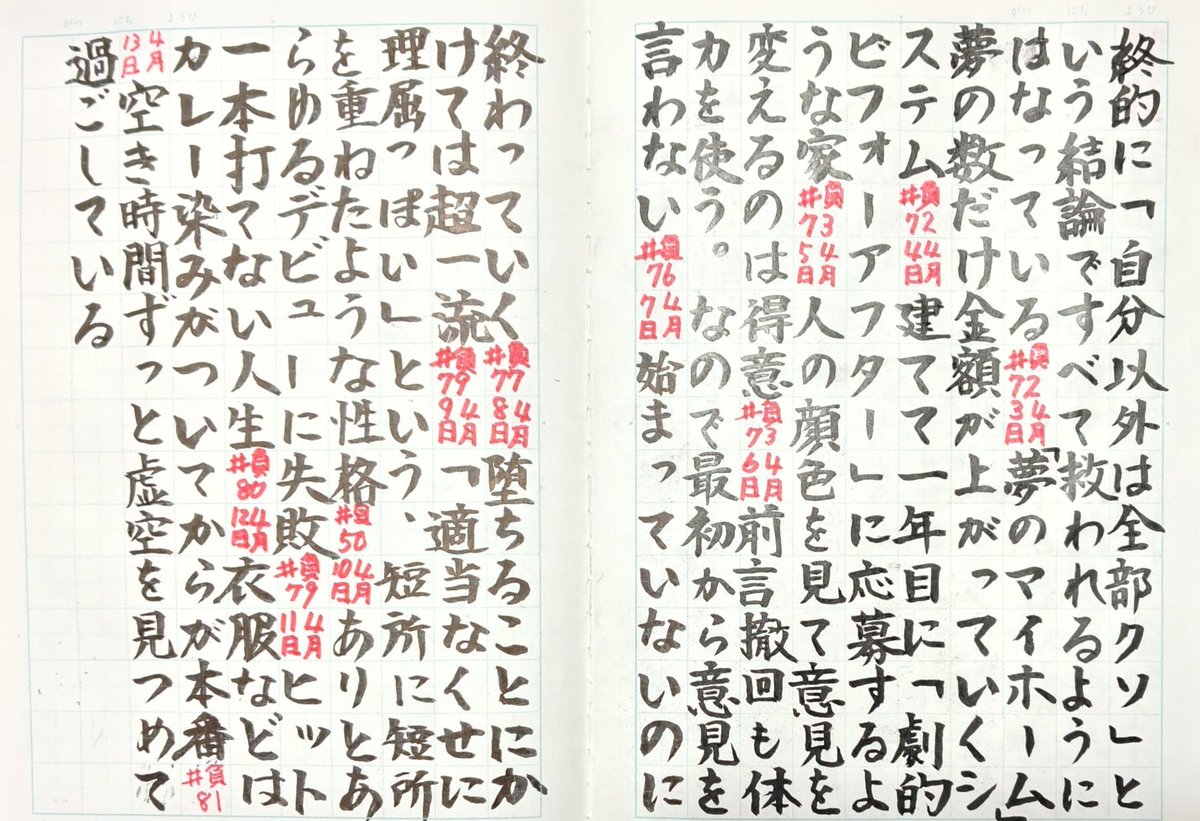 がつ にち ようび
終的に「自分以外は全部クソ」と
いう結論ですべて救われるように
はなっている #負72 4月3日 「夢のマイホーム」
夢の数だけ金額が上がっていくシ
ステム #負72 4月4日 建てて一年目に「劇的
ビフォーアフター」に応募するよ
うな家 #負73 4月5日 人の顔色を見て意見を
変えるのは得意 #負73 4月6日 前言撤回も体
力を使う。なので最初から意見を
言わない #負76 4月7日 始まっていないのに
がつ にち ようび
終わっていく #負77 4月8日 堕ちることにか
けては超一流 #負79 4月9日 「適当なくせに
理屈っぽい」という、短所に短所
を重ねたような性格 #負50 4月10日 ありとあ
らゆるデビューに失敗 #負79 4月11日 ヒット
一本打てない人生 #負80 4月12日 衣服などは
カレー染みがついてからが本番 #負81
4月13日 空き時間ずっと虚空を見つめて
過ごしている